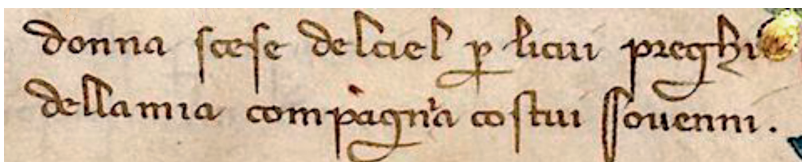 donna scese delciel ꝑ licui preghi
dellamia compagnia costui souenni.